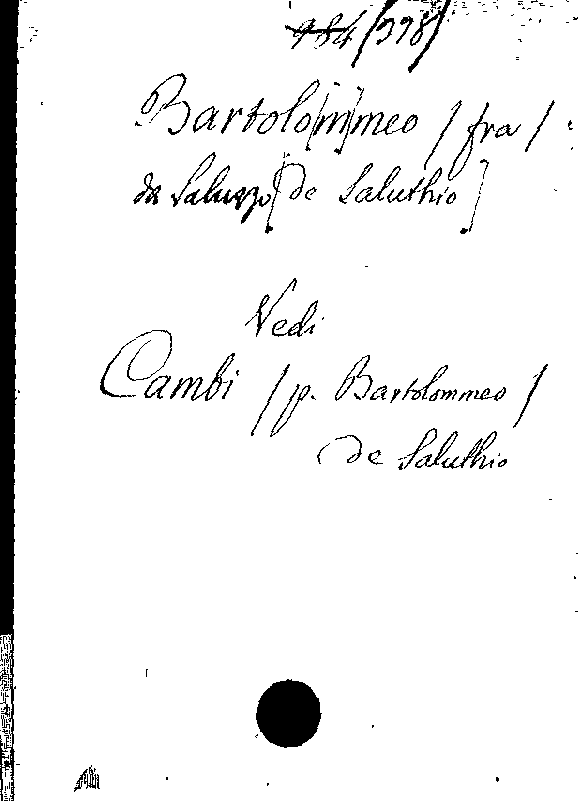 984/398/
Bartolo[m]meo / fra /
da Saluzzo [de Saluthio]
Vedi
Cambi / p. Bartolommeo /
de Saluthio